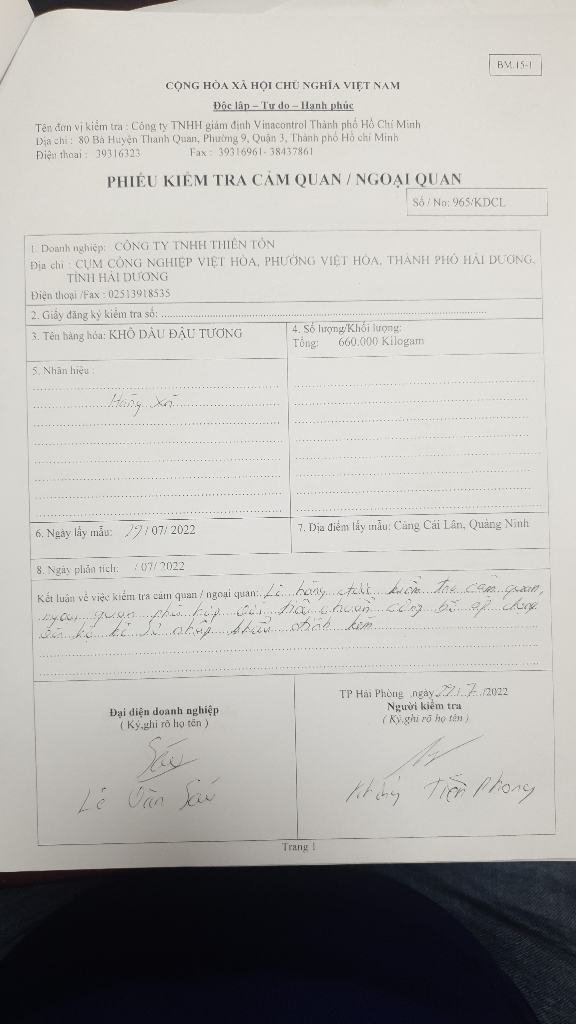 BM.15-1
CỘNG HÒA XÃ HỘI CHỦ NGHĨA VIỆT NAM
Độc lập – Tự do – Hạnh phúc
Tên đơn vị kiểm tra : Công ty TNHH giám định Vinacontrol Thành phố Hồ Chí Minh
Địa chỉ : 80 Bà Huyện Thanh Quan, Phường 9, Quận 3, Thành phố Hồ chí Minh
Điện thoại : 39316323 Fax : 39316961- 38437861
PHIẾU KIỂM TRA CẢM QUAN / NGOẠI QUAN
Số / No: 965/KDCL
1. Doanh nghiệp: CÔNG TY TNHH THIÊN TÔN
Địa chỉ : CỤM CÔNG NGHIỆP VIỆT HÒA, PHƯỜNG VIỆT HÒA, THÀNH PHỐ HẢI DƯƠNG,
TỈNH HẢI DƯƠNG
Điện thoại /Fax : 02513918535
2. Giấy đăng ký kiểm tra số:
3. Tên hàng hóa: KHÔ DẦU ĐẬU TƯƠNG
4. Số lượng/Khối lượng:
Tổng: 660.000 Kilogam
5. Nhãn hiệu :
Hàng xá
6. Ngày lấy mẫu: 29/ 07/ 2022
7. Địa điểm lấy mẫu: Cảng Cái Lân, Quảng Ninh
8. Ngày phân tích: / 07/ 2022
Kết luận về việc kiểm tra cảm quan / ngoại quan: Lô hàng được kiểm tra cảm quan,
ngoại quan phù hợp với tiêu chuẩn công bố áp dụng
và hồ sơ nhập khẩu đính kèm
TP Hải Phòng ,ngày 29/ 7 /2022
Đại diện doanh nghiệp
( Ký,ghi rõ họ tên )
Người kiểm tra
( Ký,ghi rõ họ tên )
Sáu
Lê Văn Sáu
Tiến Phong
Trang 1